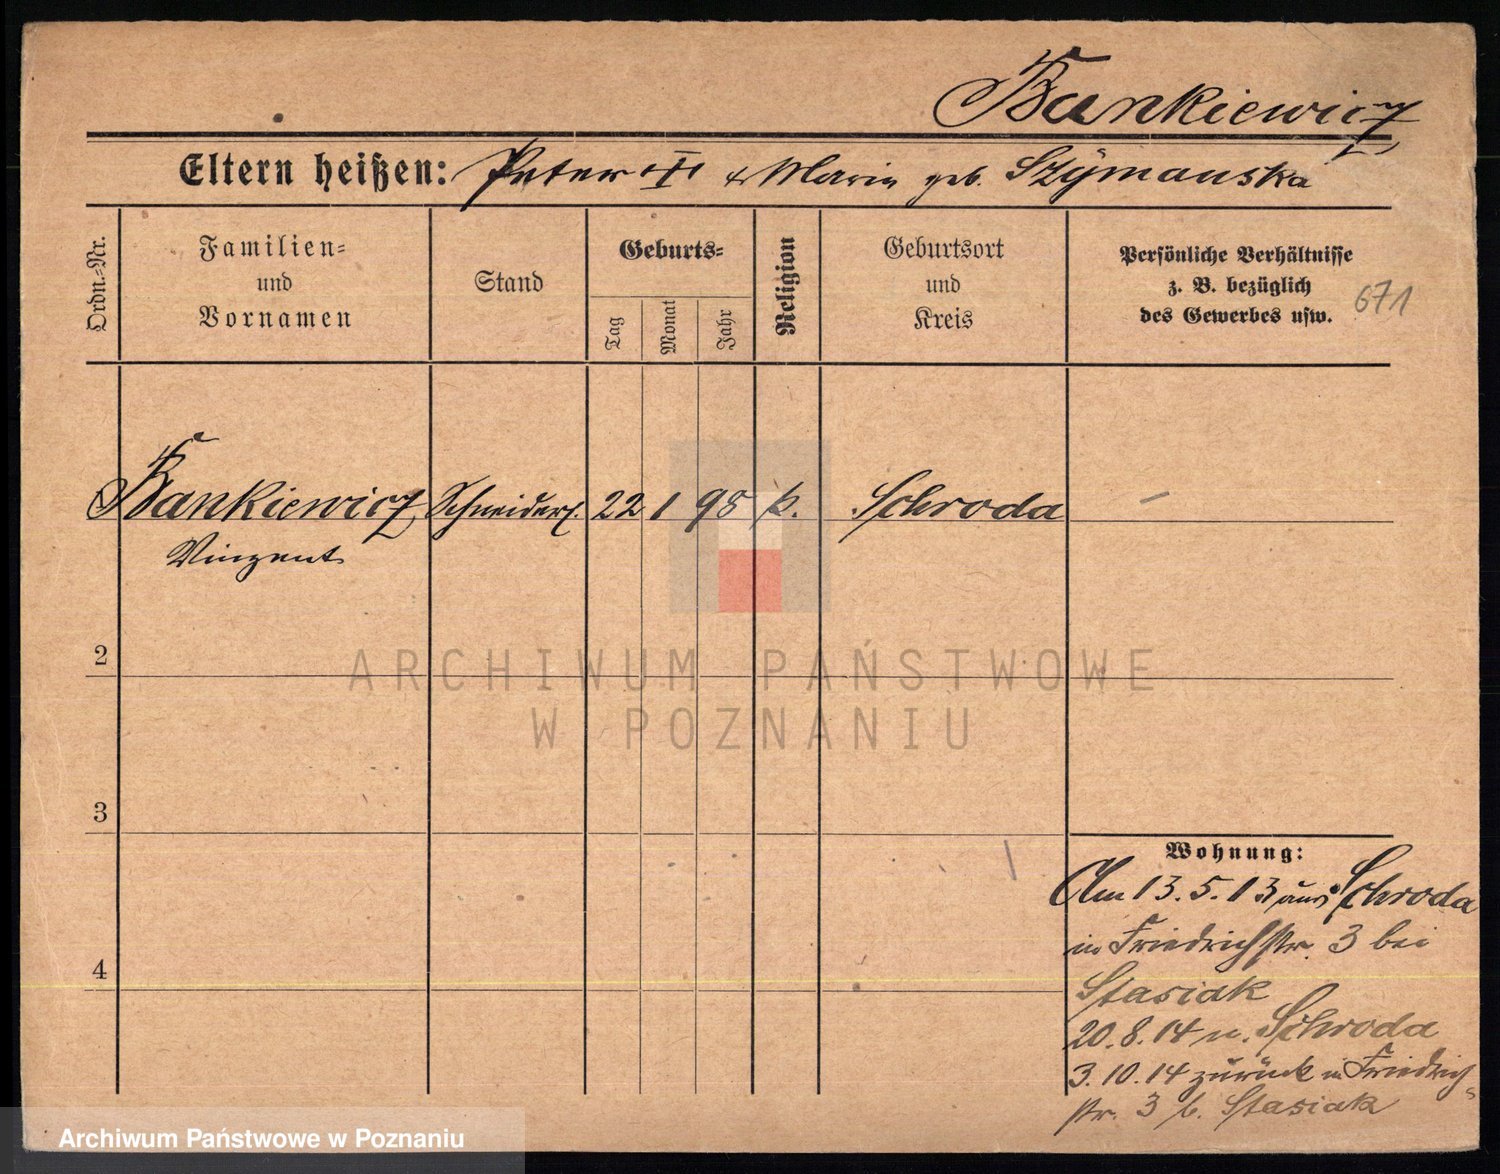 Bankiewicz
Eltern heißen: Peter † & Maria geb. Szymanska
Ordn.-Nr.
Familien-
und
Vornamen
Stand
Geburts-
Tag
Monat
Jahr
Religion
Geburtsort
und
Kreis
Persönliche Verhältnisse
z. B. bezüglich
des Gewerbes usw.
671
Bankiewicz Schneiderl. 22 1 98 k. Schroda –
Vinzent
2
3
4
Wohnung:
Am 13.5.13 aus Schroda
in Friedrichstr. 3 bei
Stasiak
20.8.14 n. Schroda
3.10.14 zurück in Friedrich-
str. 3 b. Stasiak
ARCHIWUM PAŃSTWOWE
W POZNANIU
Archiwum Państwowe w Poznaniu